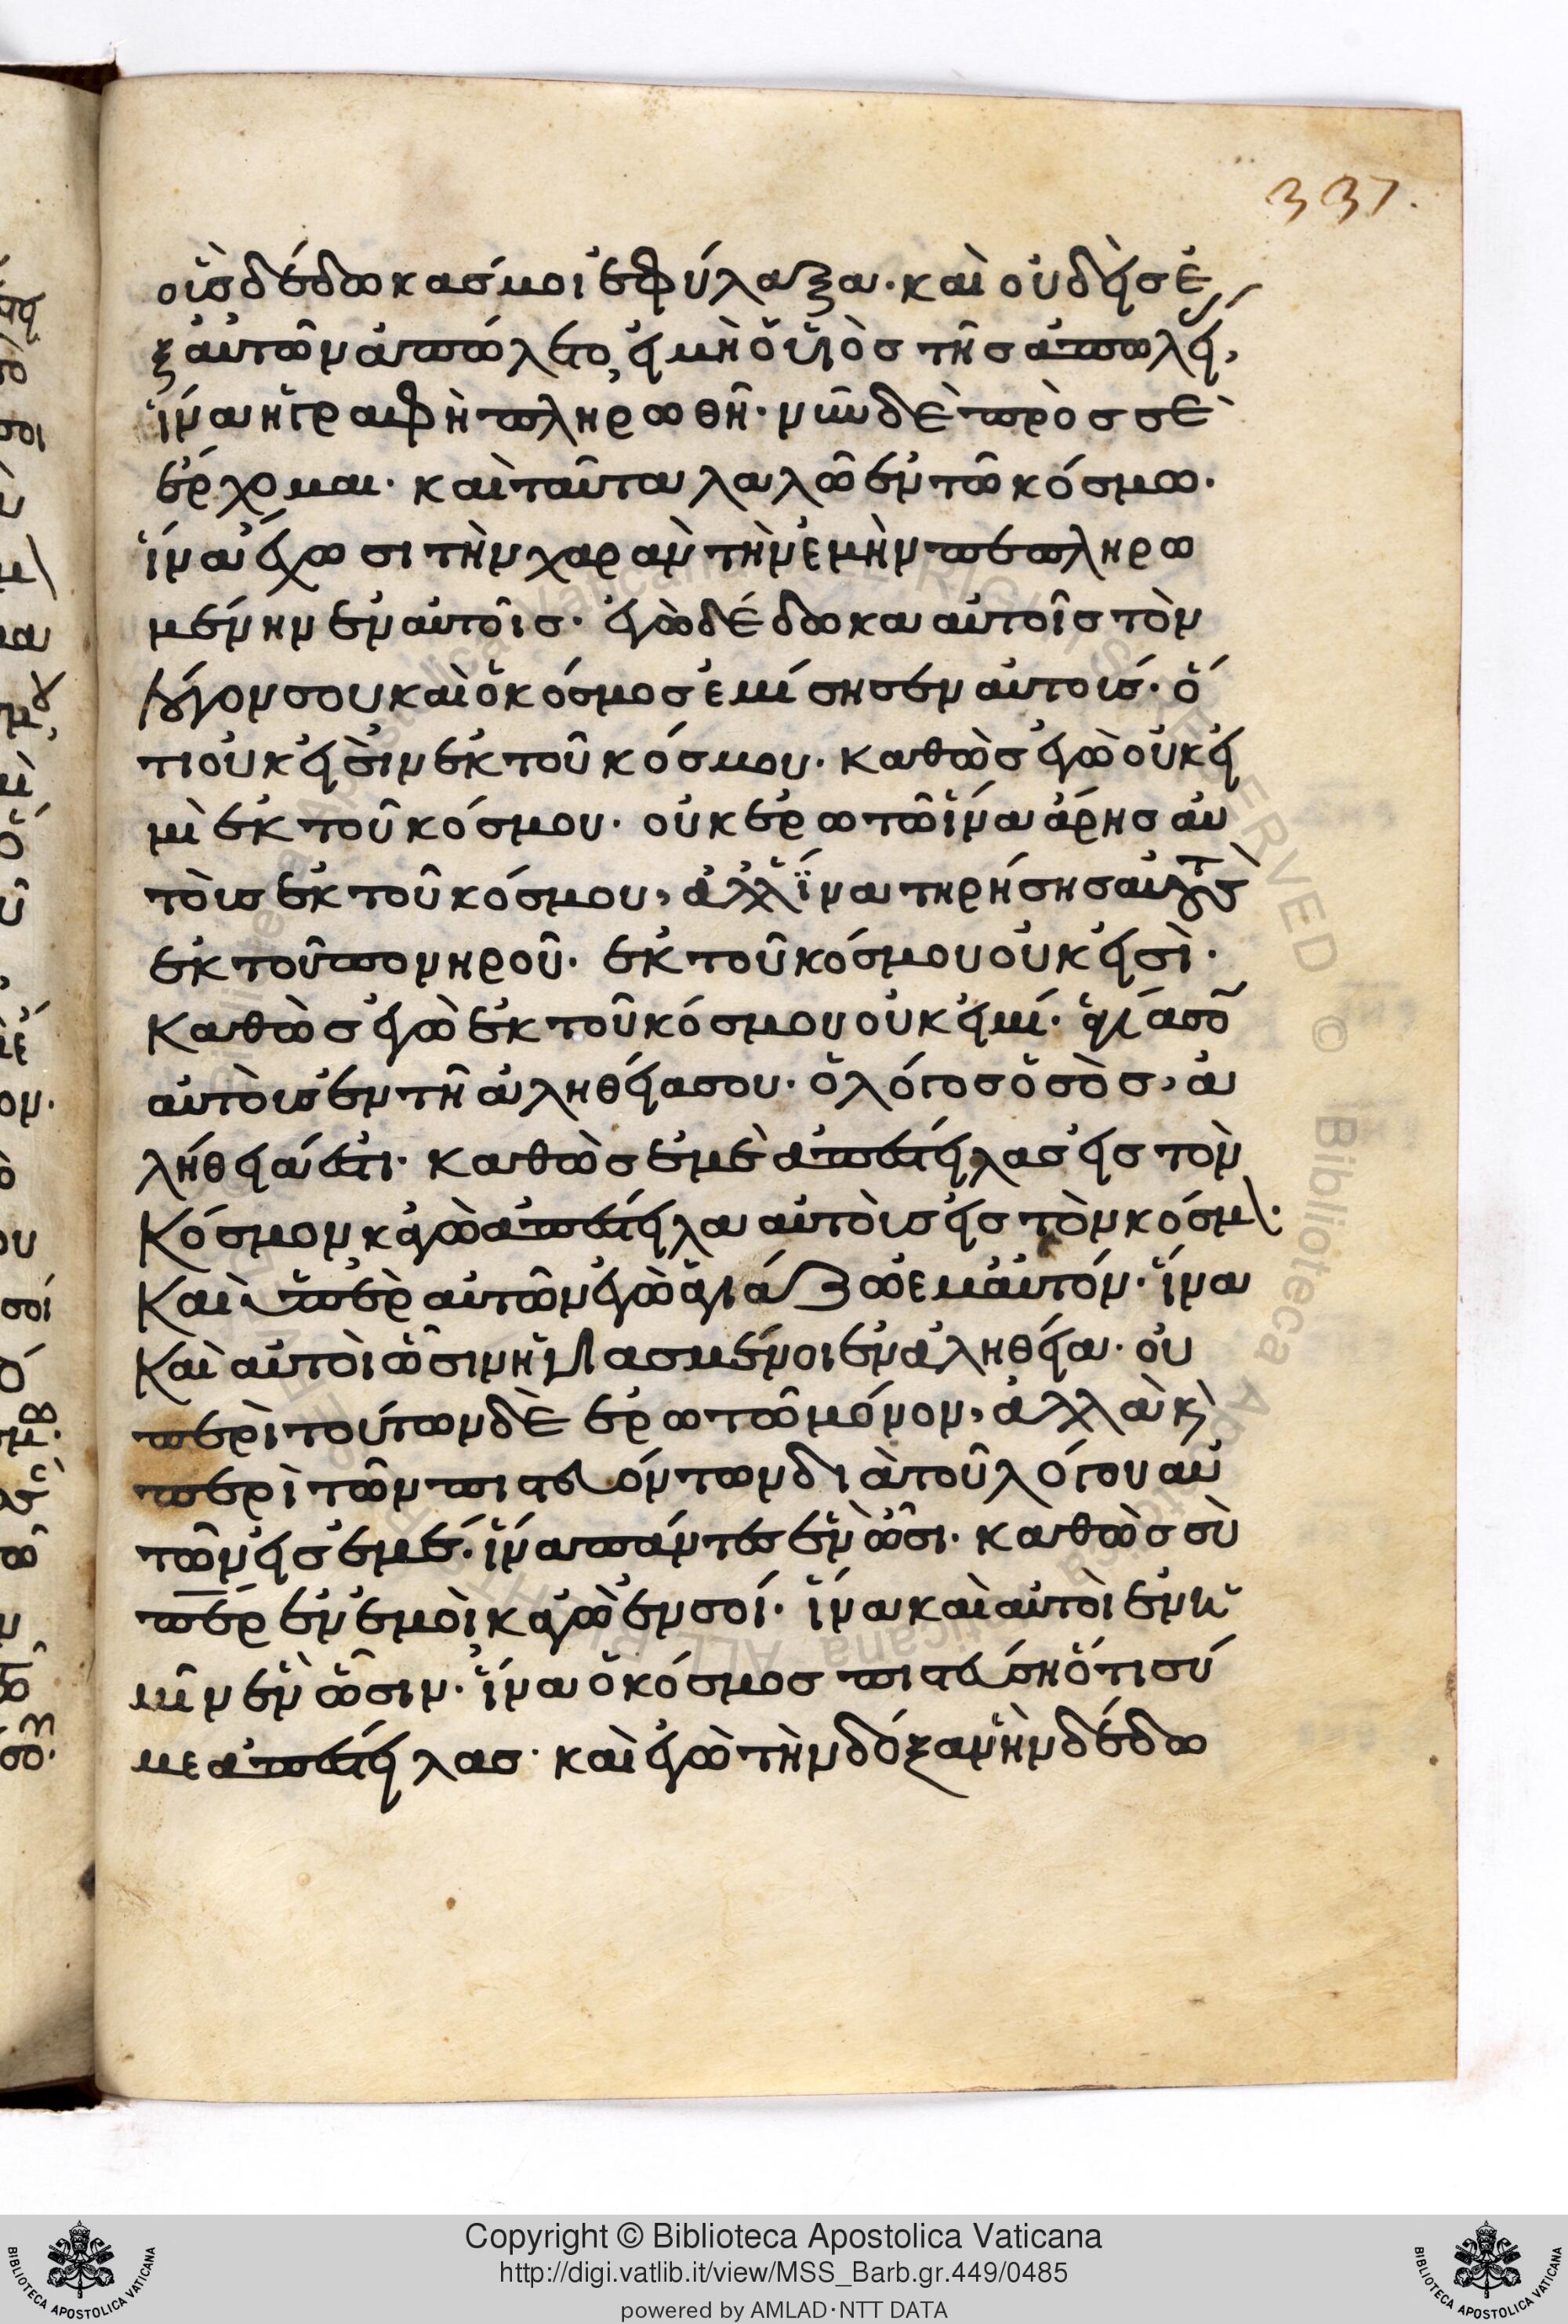 337.
οὓς δέδωκάς μοι ἐφύλαξα· καὶ οὐδεὶς ἐ
ξ αὐτῶν ἀπώλετο, εἰ μὴ ὁ υἱὸς τῆς ἀπωλεί,
ἵνα ἡ γραφὴ πληρωθῆ· νῦν δὲ πρὸς σὲ
ἔρχομαι· καὶ ταῦτα λαλῶ ἐν τῶ κόσμω·
ἵνα ἔχωσι τὴν χαρὰν τὴν ἐμὴν πεπληρω
μένην ἐν αὐτοῖς· ἐγὼ δέδωκα αὐτοῖς τὸν
λόγον σου καὶ ὁ κόσμος ἐμίσησεν αὐτούς· ὅ
τι οὐκ εἰσὶν ἐκ τοῦ κόσμου· καθὼς ἐγὼ οὐκ εἰ
μὶ ἐκ τοῦ κόσμου· οὐκ ἐρωτῶ ἵνα ἄρης αὐ
τοὺς ἐκ τοῦ κόσμου, ἀλλ' ἵνα τηρήσης αὐτοὺς
ἐκ τοῦ πονηροῦ· ἐκ τοῦ κόσμου οὐκ εἰσὶ·
καθὼς ἐγὼ ἐκ τοῦ κόσμου οὐκ εἰμί· ἁγίασον
αὐτοὺς ἐν τῆ ἀληθεία σου· ὁ λόγος ὁ σὸς, ἀ
λήθειά ἐστι· καθὼς ἐμὲ ἀπέστειλας εἰς τὸν
κόσμον κἀγὼ ἀπέστειλα αὐτοὺς εἰς τὸν κόσμ·
καὶ ὑπὲρ αὐτῶν ἐγὼ ἁγιάζω ἐμαυτόν· ἵνα
καὶ αὐτοὶ ὦσιν ἡγιασμένοι ἐν ἀληθεία· οὐ
περὶ τούτων δὲ ἐρωτῶ μόνον, ἀλλὰ κ
περὶ τῶν πιστευόντων διὰ τοῦ λόγου αὐ
τῶν εἰς ἐμέ· ἵνα πάντες ἓν ὦσι· καθὼς σὺ
περ ἐν ἐμοὶ κἀγὼ ἐν σοί· ἵνα καὶ αὐτοὶ ἐν ἡ
μῖν ἓν ὦσιν· ἵνα ὁ κόσμος πιστεύση ὅτι σύ
με ἀπέστειλας· καὶ ἐγὼ τὴν δόξαν ἣν δέδω
Copyright © Biblioteca Apostolica Vaticana
http://digi.vatlib.it/view/MSS_Barb.gr.449/0485
powered by AMLAD·NTT DATA
BIBLIOTECA APOSTOLICA VATICANA
BIBLIOTECA APOSTOLICA VATICANA